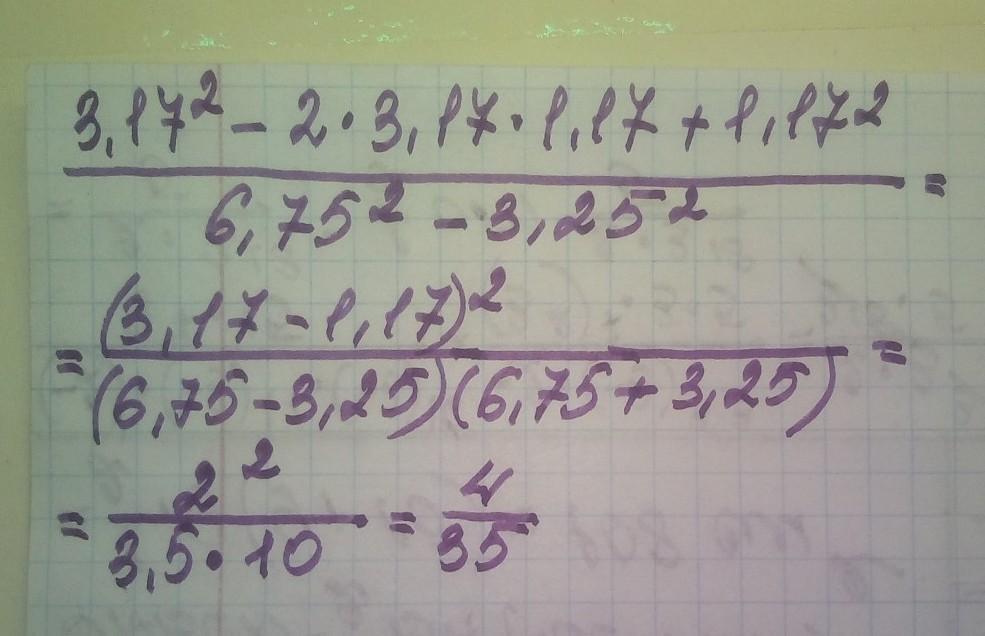 3,17² - 2·3,17·1,17 + 1,17²
6,75² - 3,25² =
= (3,17 - 1,17)²
(6,75 - 3,25)(6,75 + 3,25) =
= 2² / 3,5·10 = 4 / 35